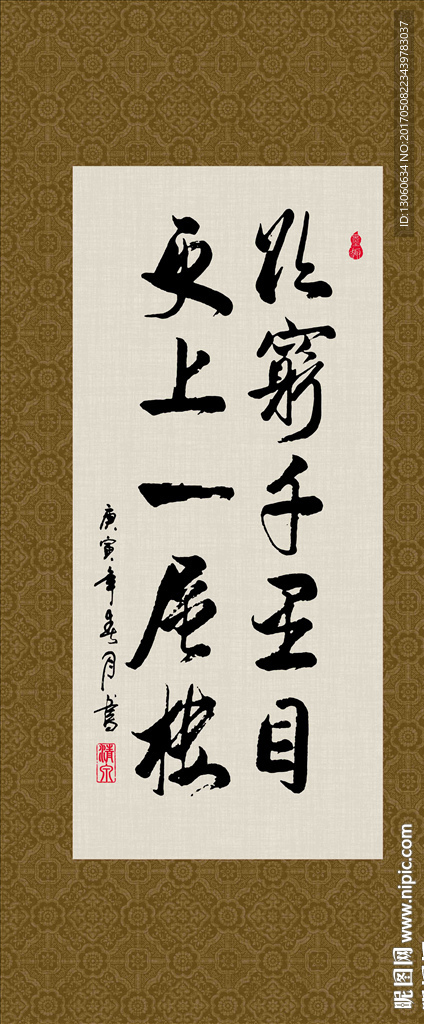 欲窮千里目
更上一层楼
庚寅年春月書
清泉
ID:13060634 NO:20170508223439783037
昵图网 www.nipic.com